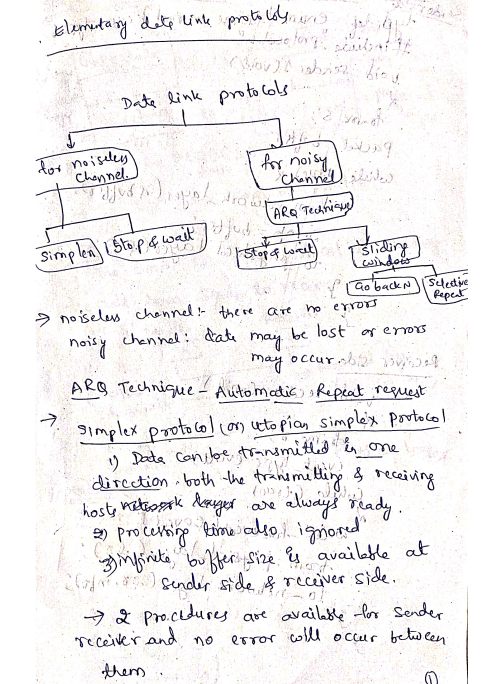 Elementary data link protocols
Data link protocols
for noiseless channel.
for noisy channel.
ARQ Technique
Simplex
Stop & wait
Stop & wait
Sliding window
Go back N
Selective Repeat
→ noiseless channel:- there are no errors
noisy channel: data may be lost or errors
may occur.
ARQ Technique - Automatic Repeat request
→ simplex protocol (or) utopian simplex protocol
1) Data can be transmitted in one
direction. both the transmitting & receiving
hosts are always ready.
2) processing time also ignored
3) infinite buffer size is available at
sender side & receiver side.
→ 2 procedures are available for sender
receiver and no error will occur between
them.
1